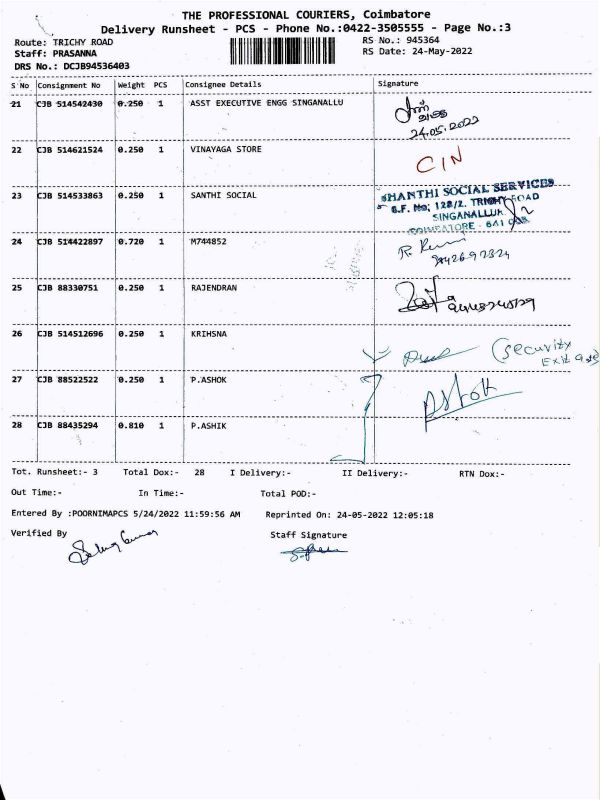 THE PROFESSIONAL COURIERS, Coimbatore
Delivery Runsheet - PCS - Phone No.:0422-3505555 - Page No.:3
Route: TRICHY ROAD
RS No.: 945364
Staff: PRASANNA
RS Date: 24-May-2022
DRS No.: DCJB94536403
S No Consignment No Weight PCS Consignee Details Signature
21 CJB 514542430 0.250 1 ASST EXECUTIVE ENGG SINGANALLU
24.05.2022
22 CJB 514621524 0.250 1 VINAYAGA STORE
CIN
23 CJB 514533863 0.250 1 SANTHI SOCIAL
SHANTHI SOCIAL SERVICES
S.F. No; 128/2. TRICHY ROAD
SINGANALLUR
COIMBATORE - 641 005
24 CJB 514422897 0.720 1 M744852
25 CJB 88330751 0.250 1 RAJENDRAN
26 CJB 514512696 0.250 1 KRIHSNA
(security
Exit gate)
27 CJB 88522522 0.250 1 P.ASHOK
Ashok
28 CJB 88435294 0.810 1 P.ASHIK
Tot. Runsheet:- 3 Total Dox:- 28 I Delivery:- II Delivery:- RTN Dox:-
Out Time:- In Time:- Total POD:-
Entered By :POORNIMAPCS 5/24/2022 11:59:56 AM Reprinted On: 24-05-2022 12:05:18
Verified By Staff Signature